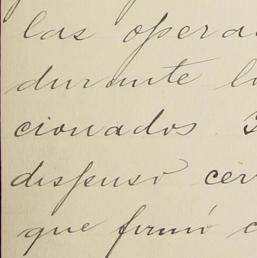 las opera
durante l
cionados.
dispuso cer
que firmó c